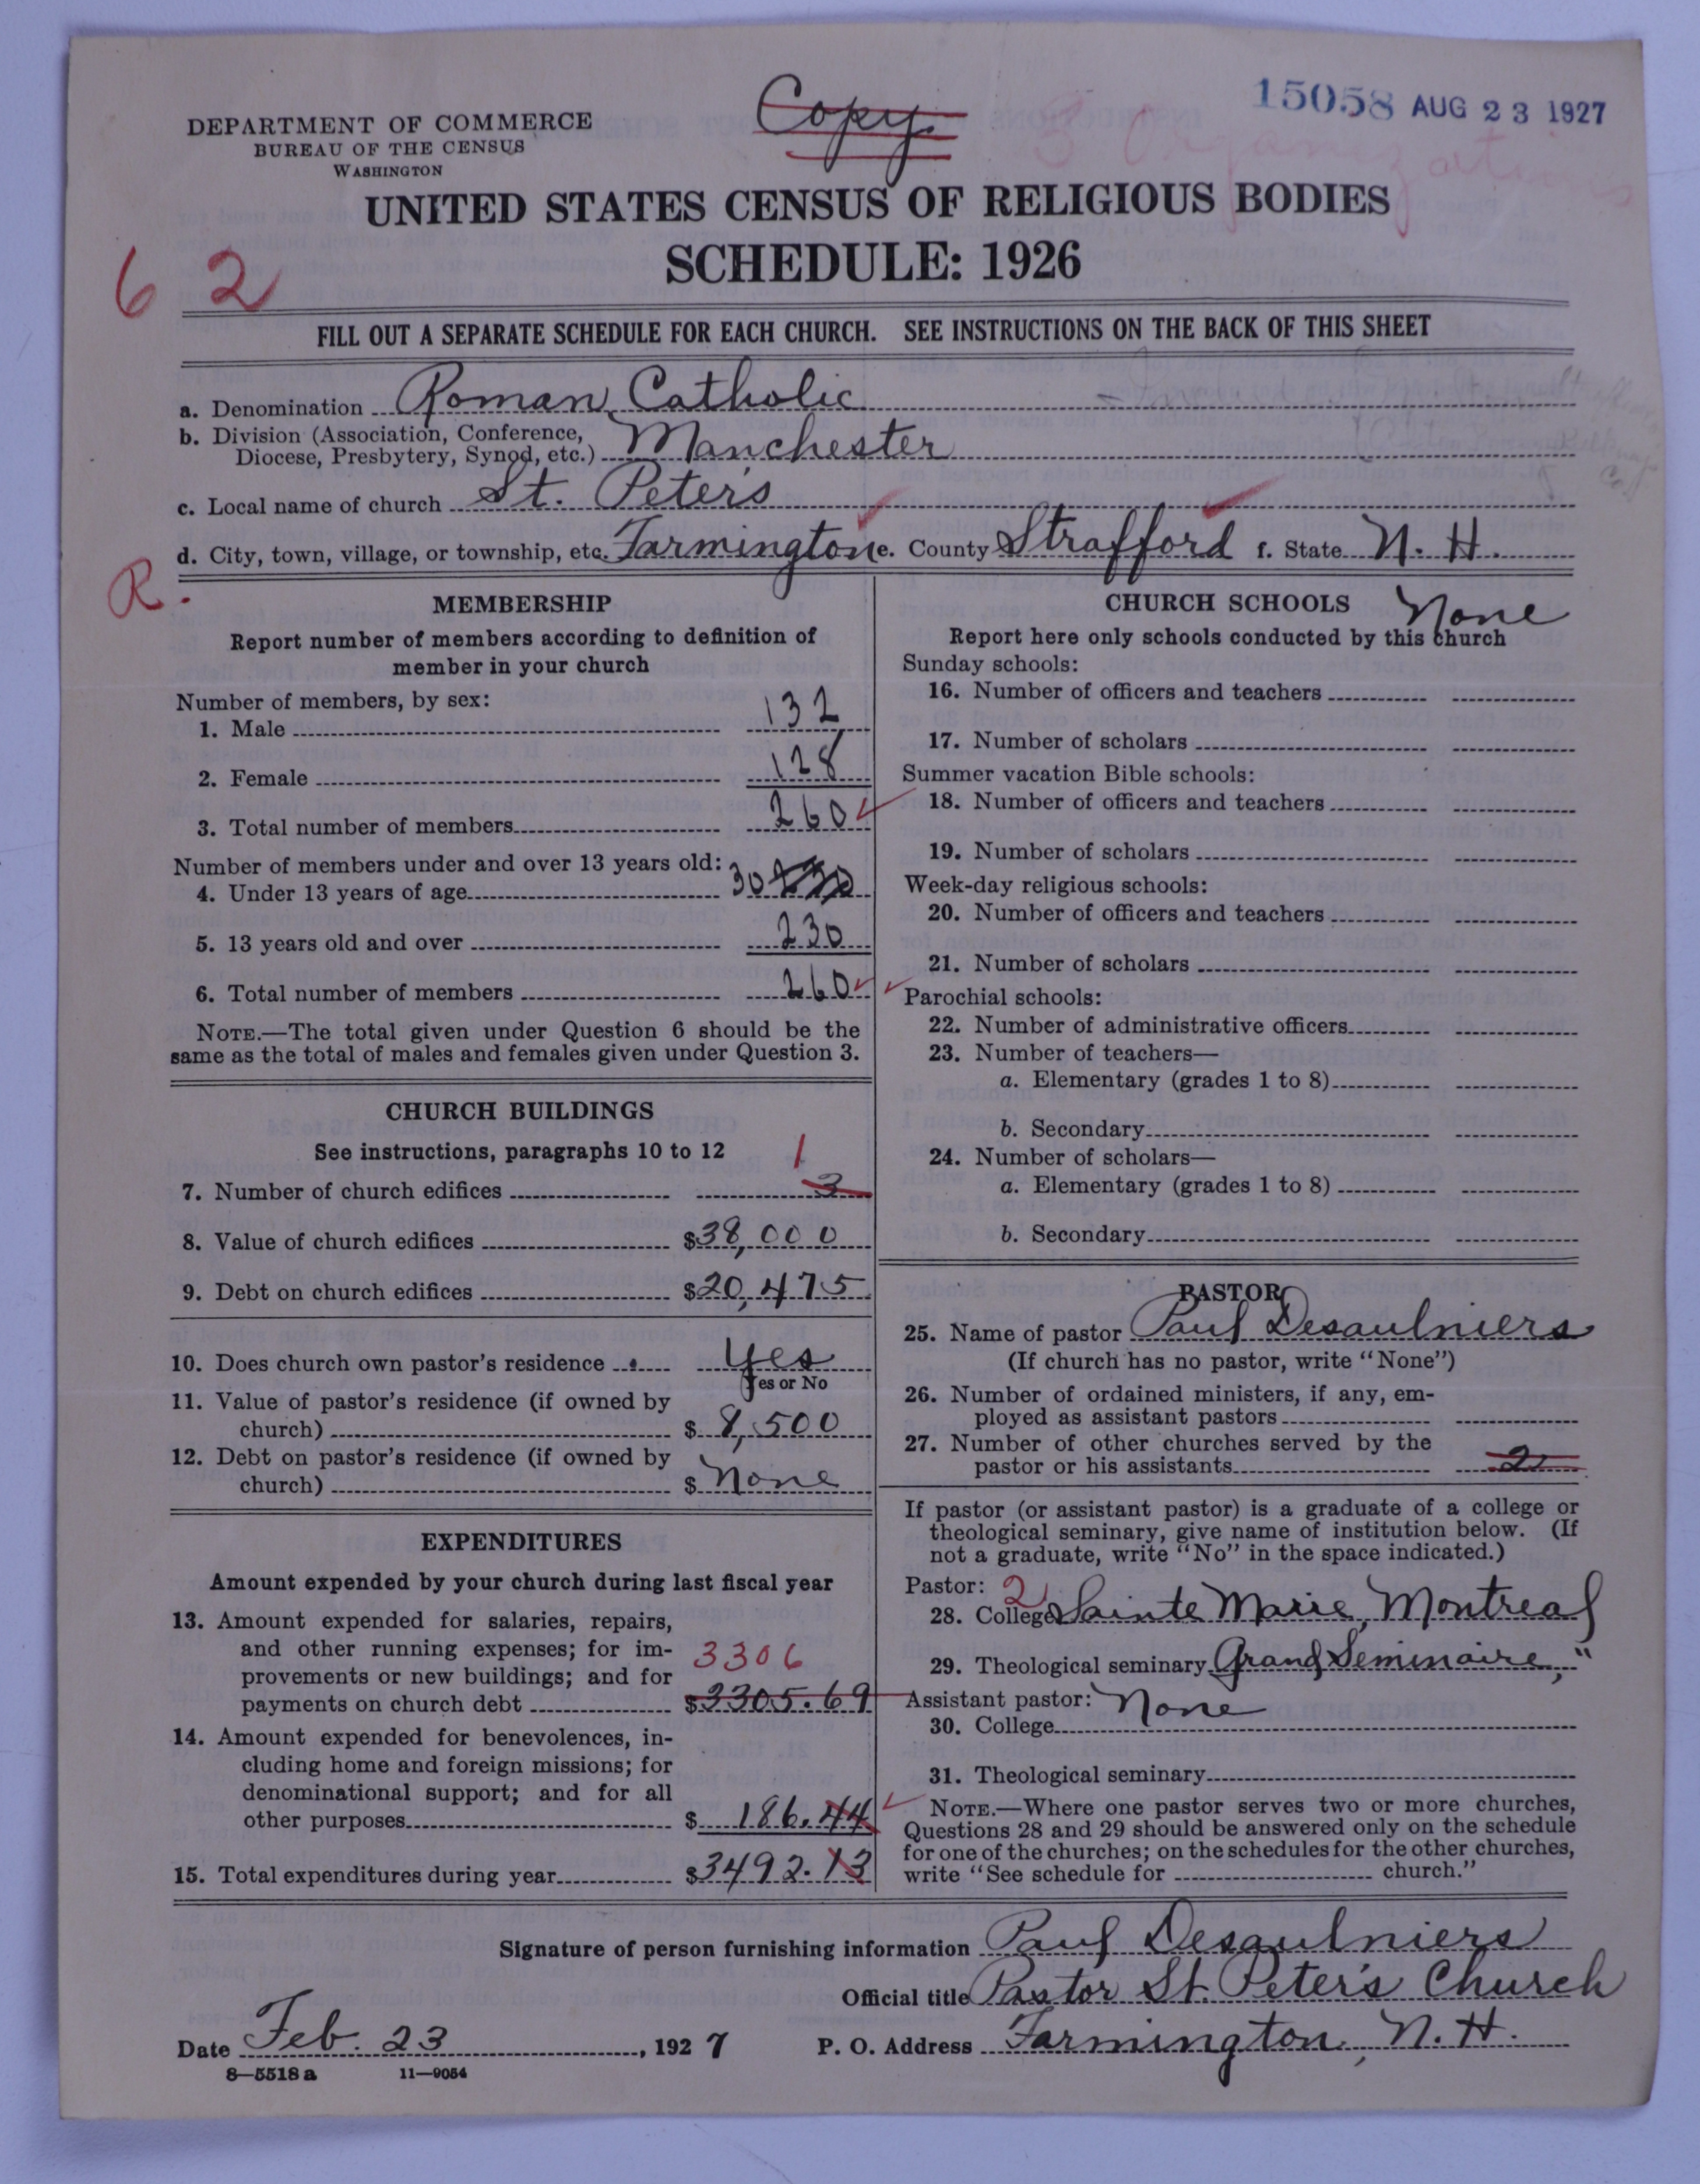 Copy
15058 AUG 23 1927
3 Organizations
DEPARTMENT OF COMMERCE
BUREAU OF THE CENSUS
WASHINGTON
UNITED STATES CENSUS OF RELIGIOUS BODIES
SCHEDULE: 1926
6 2
FILL OUT A SEPARATE SCHEDULE FOR EACH CHURCH. SEE INSTRUCTIONS ON THE BACK OF THIS SHEET
a. Denomination Roman Catholic
b. Division (Association, Conference,
Diocese, Presbytery, Synod, etc.) Manchester
c. Local name of church St. Peter's
d. City, town, village, or township, etc. Farmington e. County Strafford f. State N. H.
R.
MEMBERSHIP
Report number of members according to definition of
member in your church
Number of members, by sex:
1. Male 132
2. Female 128
3. Total number of members 260
Number of members under and over 13 years old:
4. Under 13 years of age 30
5. 13 years old and over 230
6. Total number of members 260
NOTE.—The total given under Question 6 should be the
same as the total of males and females given under Question 3.
CHURCH BUILDINGS
See instructions, paragraphs 10 to 12
1
7. Number of church edifices 3
8. Value of church edifices $38,000
9. Debt on church edifices $20,475
10. Does church own pastor's residence Yes
Yes or No
11. Value of pastor's residence (if owned by
church) $ 8,500
12. Debt on pastor's residence (if owned by
church) $ None
EXPENDITURES
Amount expended by your church during last fiscal year
13. Amount expended for salaries, repairs,
and other running expenses; for im-
provements or new buildings; and for 3306
payments on church debt $3305.69
14. Amount expended for benevolences, in-
cluding home and foreign missions; for
denominational support; and for all
other purposes $ 186.44
15. Total expenditures during year $3492.13
CHURCH SCHOOLS None
Report here only schools conducted by this church
Sunday schools:
16. Number of officers and teachers
17. Number of scholars
Summer vacation Bible schools:
18. Number of officers and teachers
19. Number of scholars
Week-day religious schools:
20. Number of officers and teachers
21. Number of scholars
Parochial schools:
22. Number of administrative officers
23. Number of teachers—
a. Elementary (grades 1 to 8)
b. Secondary
24. Number of scholars—
a. Elementary (grades 1 to 8)
b. Secondary
PASTOR
25. Name of pastor Paul Desaulniers
(If church has no pastor, write "None")
26. Number of ordained ministers, if any, em-
ployed as assistant pastors
27. Number of other churches served by the
pastor or his assistants 2
If pastor (or assistant pastor) is a graduate of a college or
theological seminary, give name of institution below. (If
not a graduate, write "No" in the space indicated.)
Pastor: 2
28. College Sainte Marie, Montreal
29. Theological seminary Grand Seminaire, "
Assistant pastor: None
30. College
31. Theological seminary
NOTE.—Where one pastor serves two or more churches,
Questions 28 and 29 should be answered only on the schedule
for one of the churches; on the schedules for the other churches,
write "See schedule for church."
Signature of person furnishing information Paul Desaulniers
Official title Pastor St. Peter's Church
Date Feb. 23, 1927 P. O. Address Farmington, N. H.
8—5518 a 11—9054